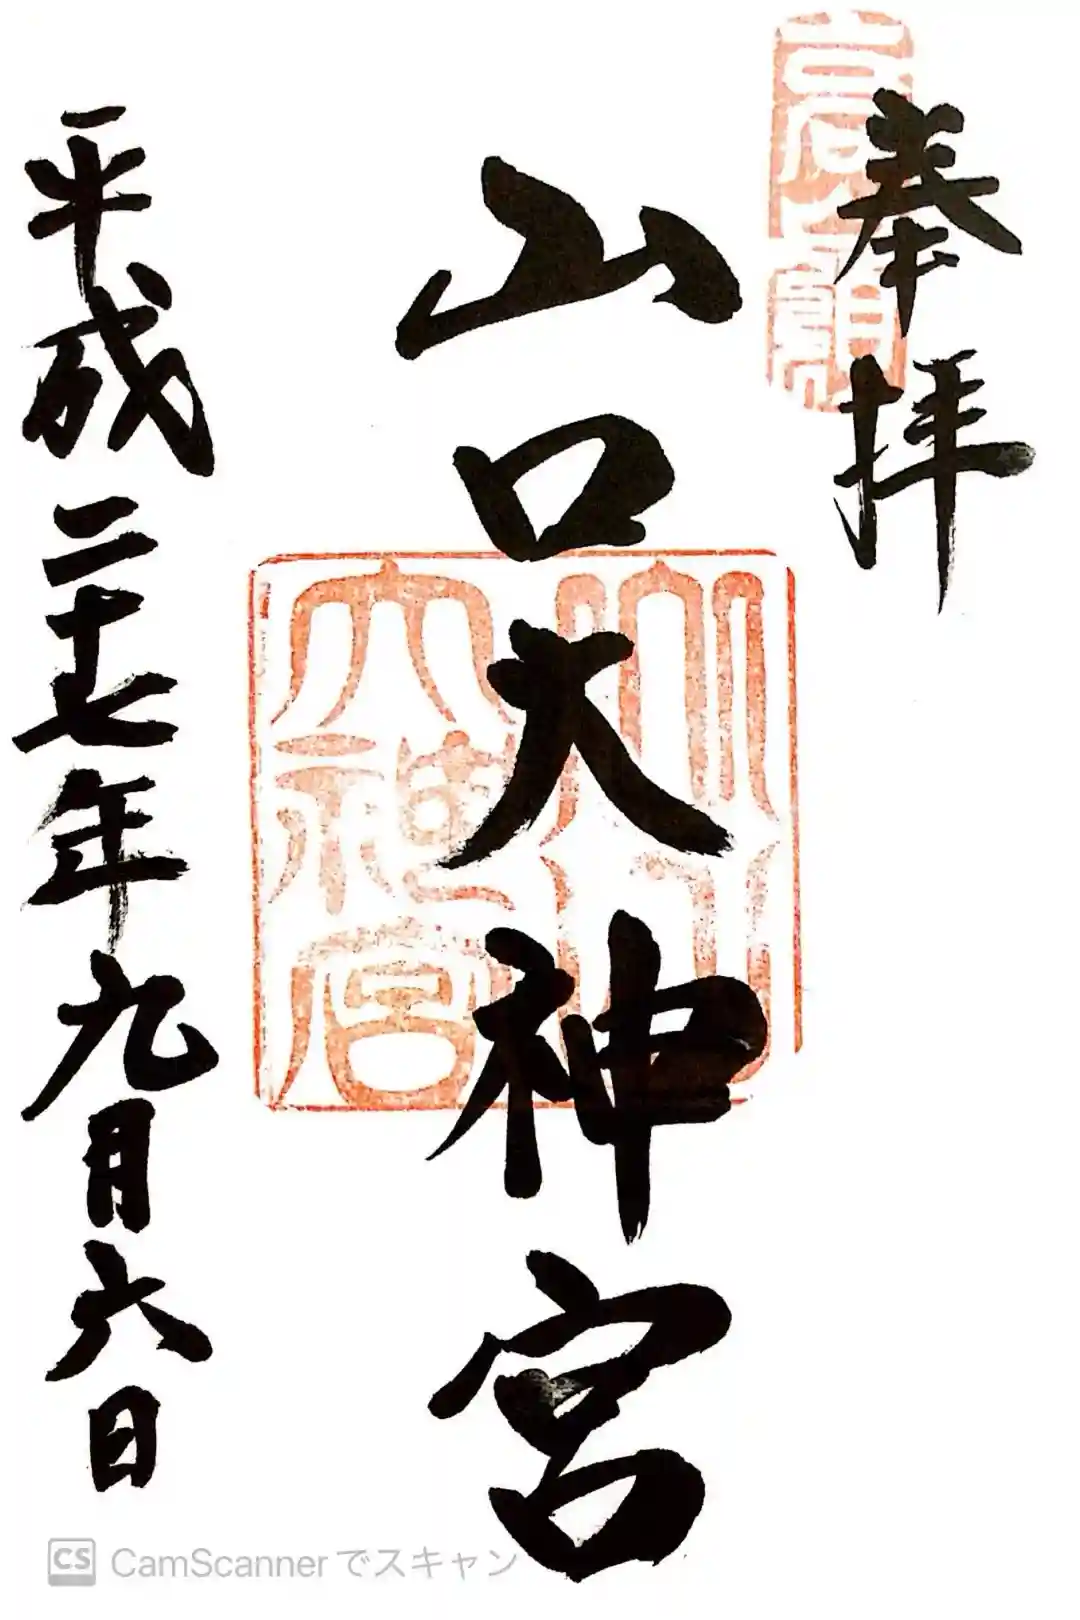 奉拝
山口大神宮
平成二十七年九月六日
山口大神宮
CS CamScannerでスキャン